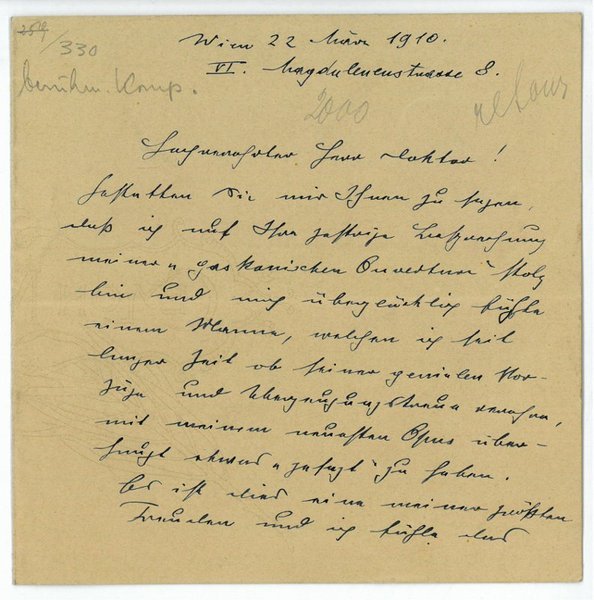 259/330
Wien 22 März 1910.
VI. Magdalenenstrasse 8.
berühm. Komp.
2000
retour
Hochverehrter Herr Doktor!
Gestatten Sie mir Ihnen zu sagen,
daß ich auf Ihre gestrige Besprechung
meiner „gaskonischen Ouverture" stolz
bin und mich überglücklich fühle
einem Manne, welchen ich seit
langer Zeit ob seiner genialen Vor-
züge und Überzeugungstreue verehre,
mit meinem neuesten Opus über-
haupt etwas „gesagt" zu haben.
Es ist dies eine meiner größten
Freuden und ich fühle das